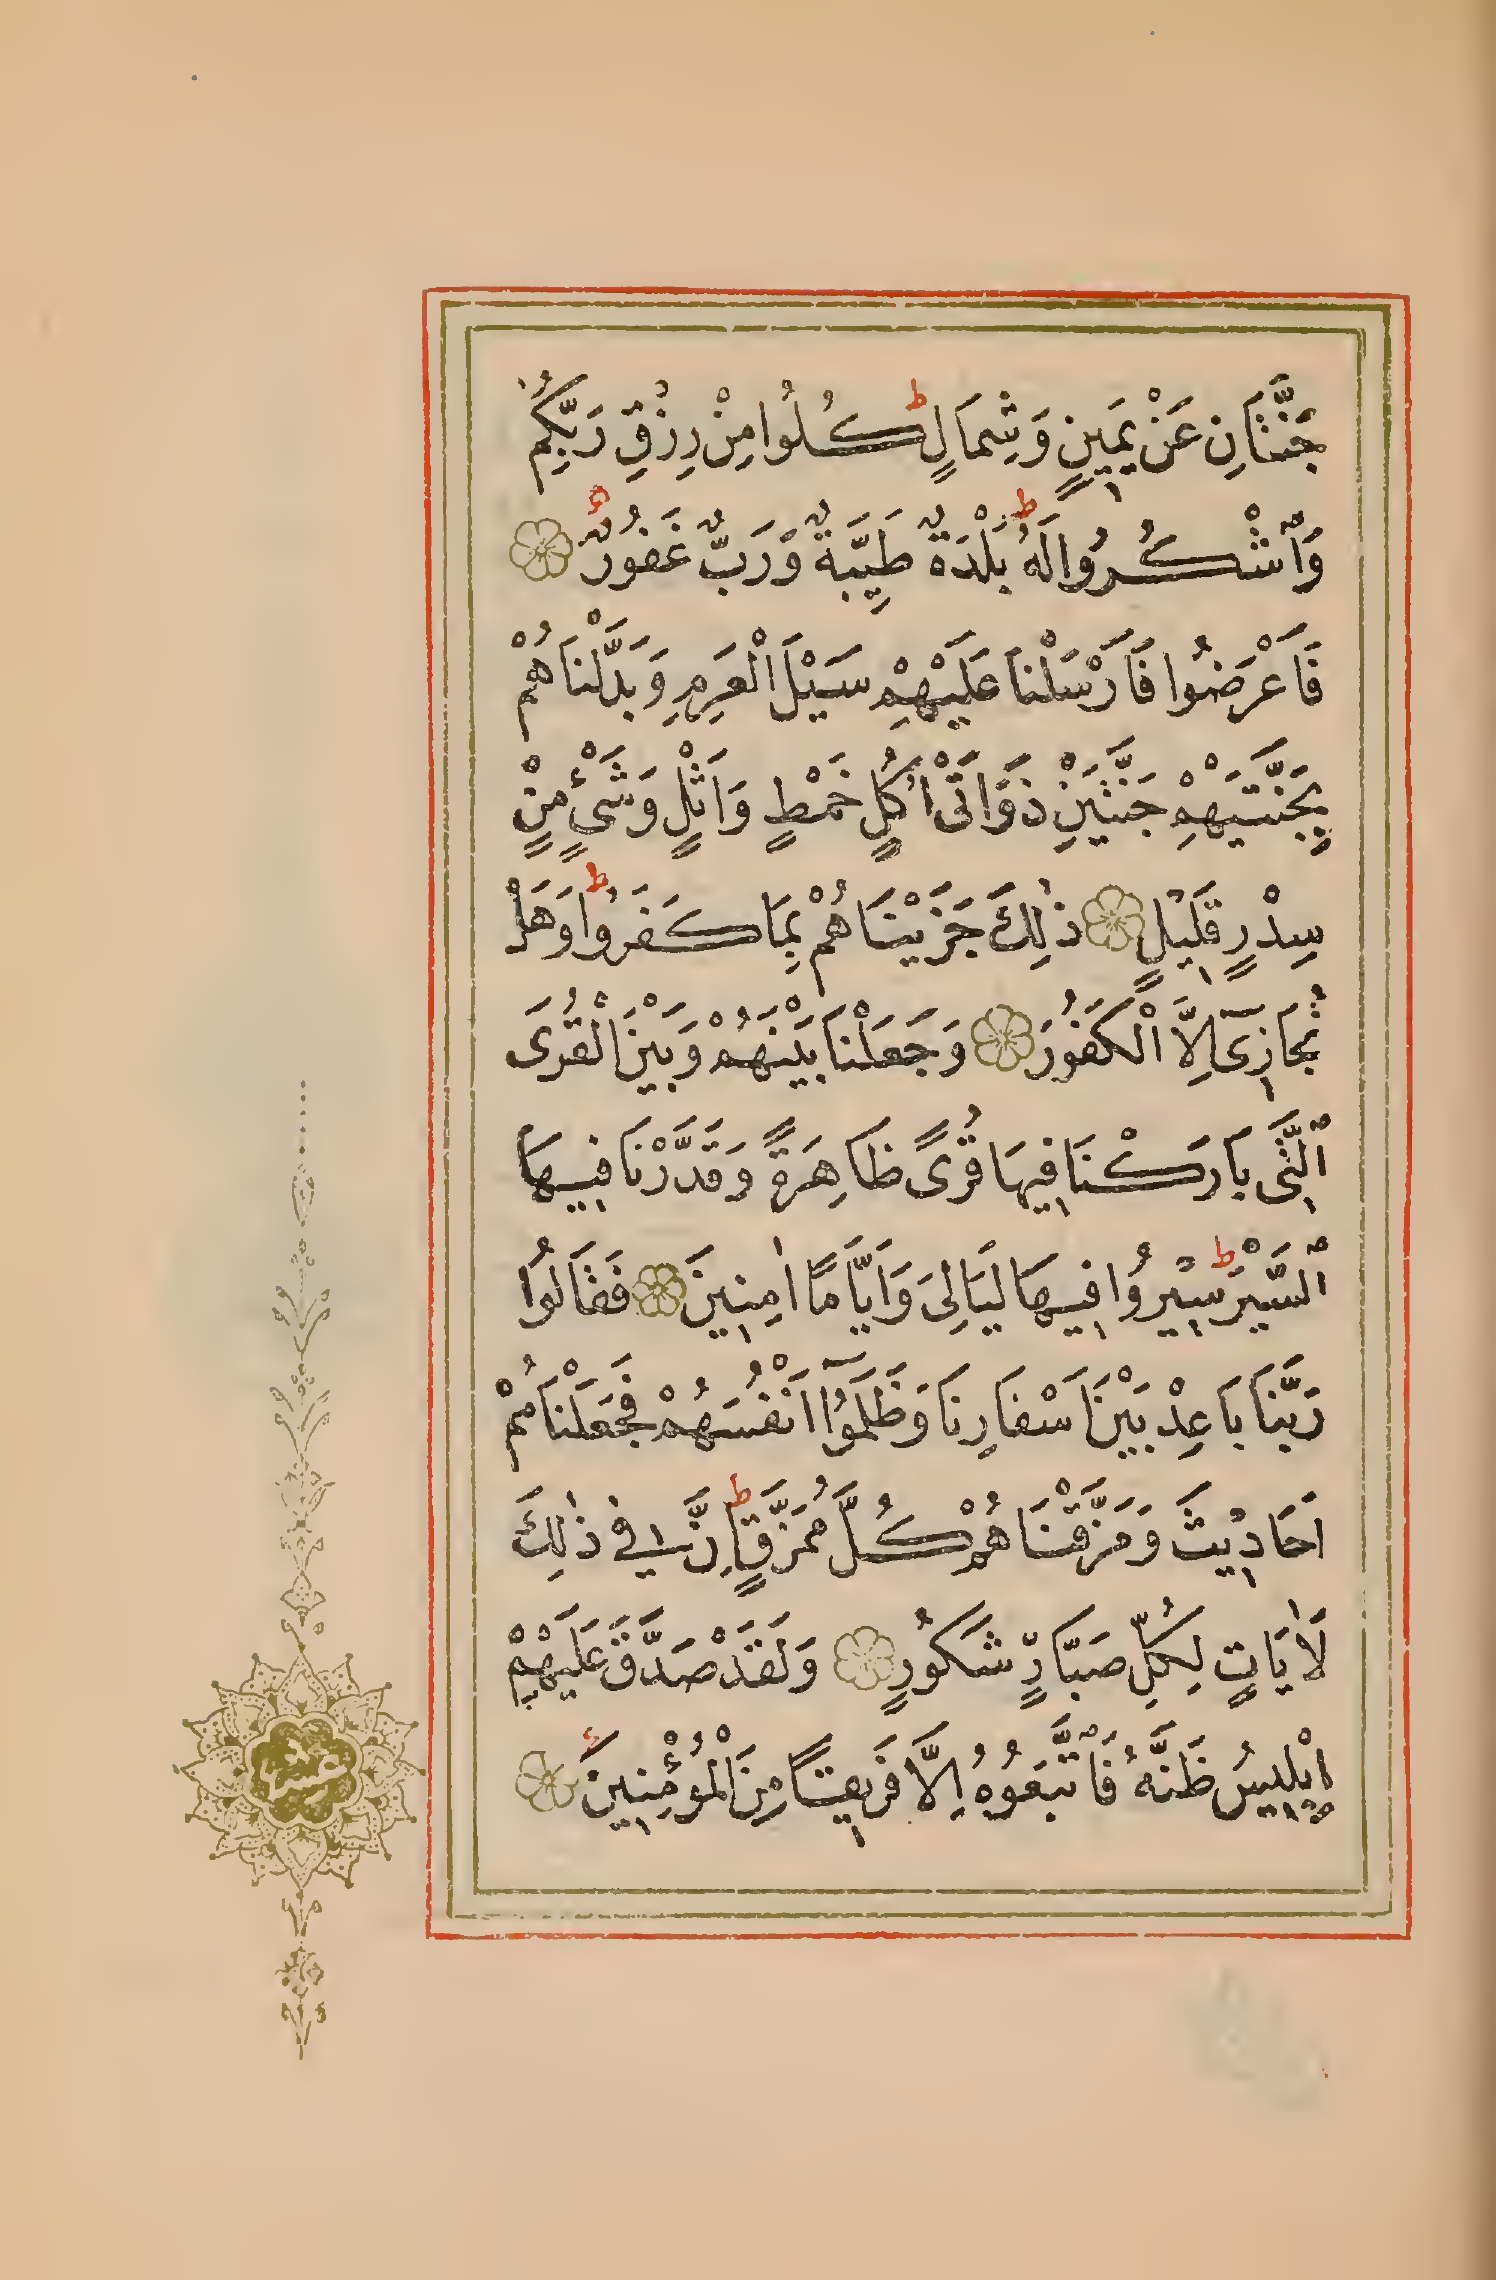 جَنَّتَانِ عَنْ يَمِينٍ وَشِمَالٍ ط كُلُوا مِنْ رِزْقِ رَبِّكُمْ
وَٱشْكُرُوا لَهُ ط بَلْدَةٌ طَيِّبَةٌ وَرَبٌّ غَفُورٌ
فَاَعْرَضُوا فَاَرْسَلْنَا عَلَيْهِمْ سَيْلَ الْعَرِمِ وَبَدَّلْنَاهُمْ
بِجَنَّتَيْهِمْ جَنَّتَيْنِ ذَوَاتَىْ اُكُلٍ خَمْطٍ وَاَثْلٍ وَشَىْءٍ مِنْ
سِدْرٍ قَلِيلٍ ذٰلِكَ جَزَيْنَاهُمْ بِمَا كَفَرُوا ط وَهَلْ
نُجَازِىٓ اِلَّا الْكَفُورَ وَجَعَلْنَا بَيْنَهُمْ وَبَيْنَ الْقُرَى
ٱلَّتِى بَارَكْنَا فِيهَا قُرًى ظَاهِرَةً وَقَدَّرْنَا فِيهَا
ٱلسَّيْرَ ط سِيرُوا فِيهَا لَيَالِىَ وَاَيَّامًا اٰمِنِينَ فَقَالُوا
رَبَّنَا بَاعِدْ بَيْنَ اَسْفَارِنَا وَظَلَمُوٓا اَنْفُسَهُمْ فَجَعَلْنَاهُمْ
اَحَادِيثَ وَمَزَّقْنَاهُمْ كُلَّ مُمَزَّقٍ ط اِنَّ فِي ذٰلِكَ
لَاٰيَاتٍ لِكُلِّ صَبَّارٍ شَكُورٍ وَلَقَدْ صَدَّقَ عَلَيْهِمْ
اِبْلِيسُ ظَنَّهُ فَٱتَّبَعُوهُ اِلَّا فَرِيقًا مِنَ الْمُؤْمِنِينَ